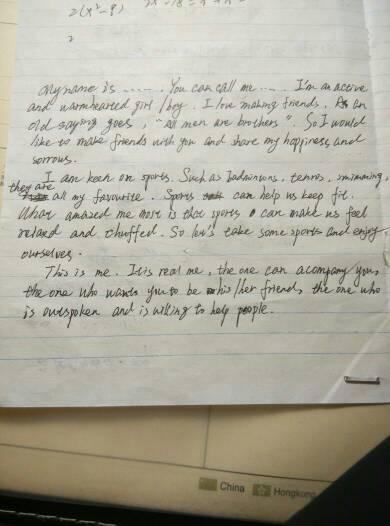 2(x²-9)
2
My name is ...... You can call me ..... I'm an active
and warmhearted girl/boy. I love making friends. As an
old saying goes, "All men are brothers". So I would
like to make friends with you and share my happiness and
sorrous.
I am keen on sports. Such as badmintons, tennis, swimming,
they are all my favourite. Sports can help us keep fit.
What amazed me most is that sports can make us feel
relaxed and chuffed. So let's take some sports and enjoy
ourselves.
This is me. It is real me, the one can acompany you,
the one who wants you to be his/her friend, the one who
is outspoken and is willing to help people.
China Hongkong